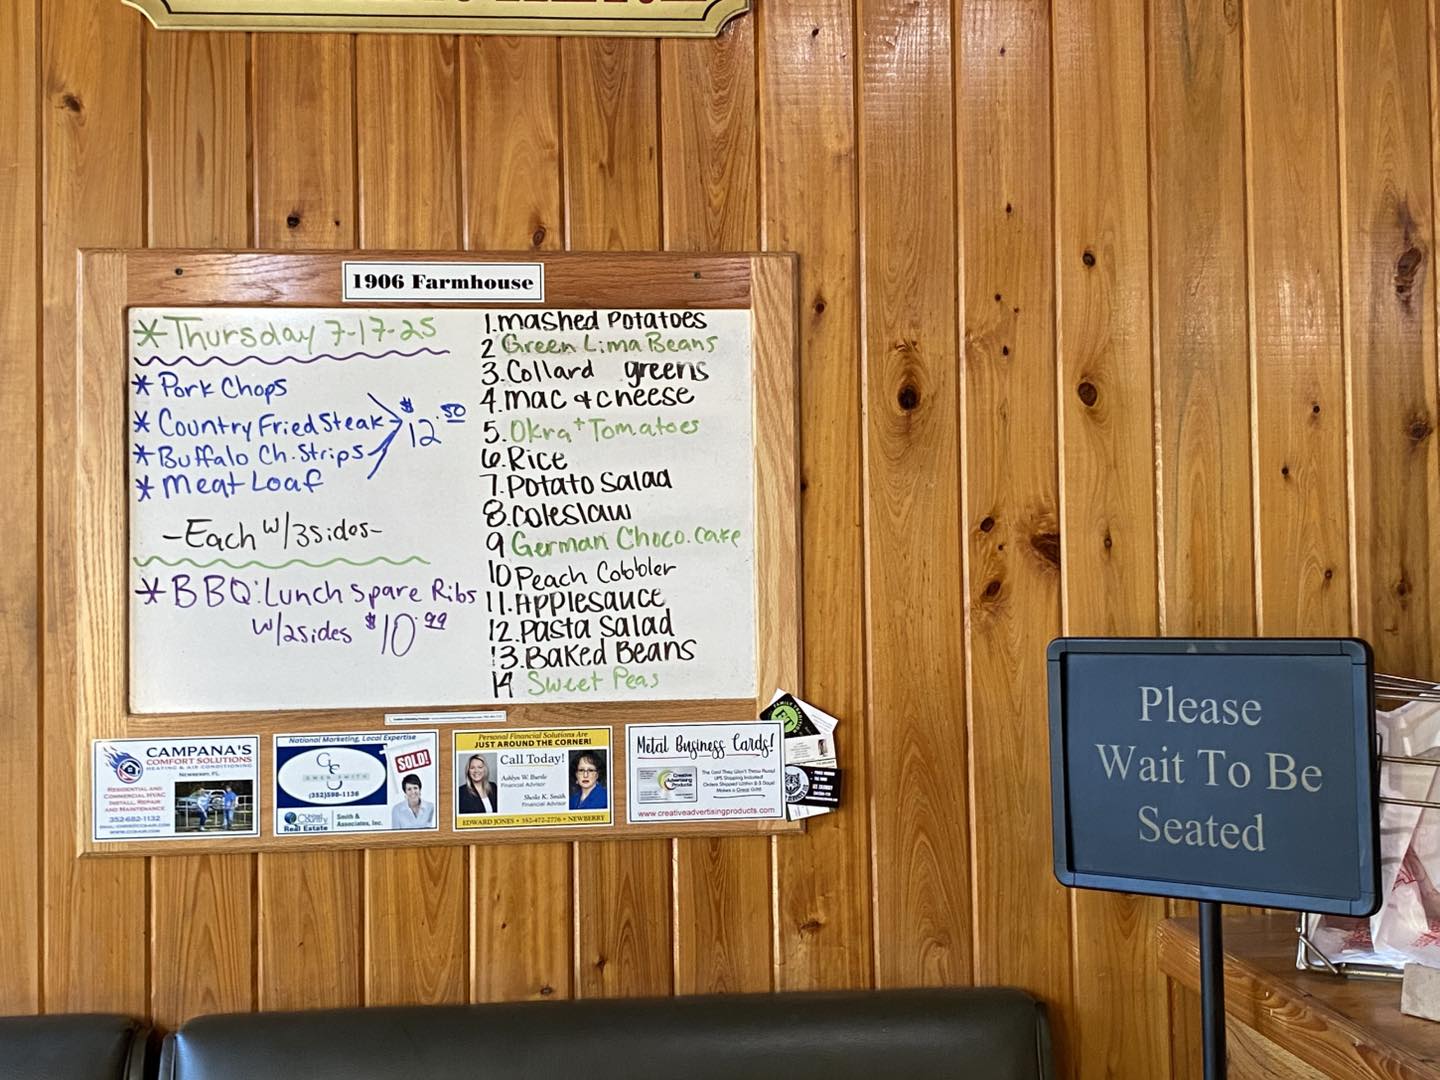 1906 Farmhouse
* Thursday 7-17-25
* Pork Chops
* Country Fried Steak
* Buffalo Ch. Strips
* Meat Loaf
$12.50
-Each w/3sides-
* BBQ: Lunch Spare Ribs
w/2sides $10.99
1. Mashed Potatoes
2 Green Lima Beans
3. Collard greens
4. Mac & cheese
5. Okra + Tomatoes
6. Rice
7. Potato Salad
8. Coleslaw
9 German Choco. Cake
10 Peach Cobbler
11. Applesauce
12. Pasta Salad
13. Baked Beans
14 Sweet Peas
CAMPANA'S
COMFORT SOLUTIONS
HEATING & AIR CONDITIONING
NEWBERRY, FL
RESIDENTIAL AND
COMMERCIAL HVAC
INSTALL, REPAIR
AND MAINTENANCE
352-682-1132
National Marketing, Local Expertise
SOLD!
(352)598-1136
Real Estate
Smith &
Associates, Inc.
Personal Financial Solutions Are
JUST AROUND THE CORNER!
Call Today!
Ashlyn W. Burtle
Financial Advisor
Sheila K. Smith
Financial Advisor
EDWARD JONES • 352-472-2776 • NEWBERRY
Metal Business Cards!
Creative
Advertising
Products
The Card They Won't Throw Away!
www.creativeadvertisingproducts.com
Please
Wait To Be
Seated